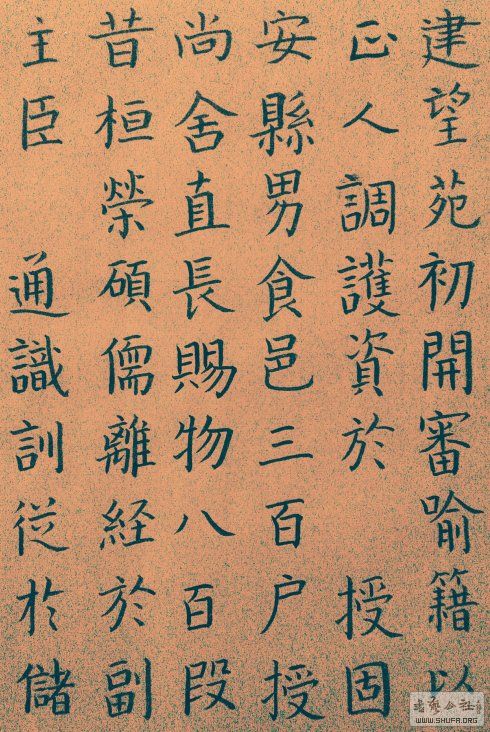 建望苑初開審喻籍以
正人調護資於 授固
安縣男食邑三百户授
尚舍直長賜物八百段
昔桓榮碩儒離経於副
主臣 通識訓從於儲
WWW.SHUFA.ORG